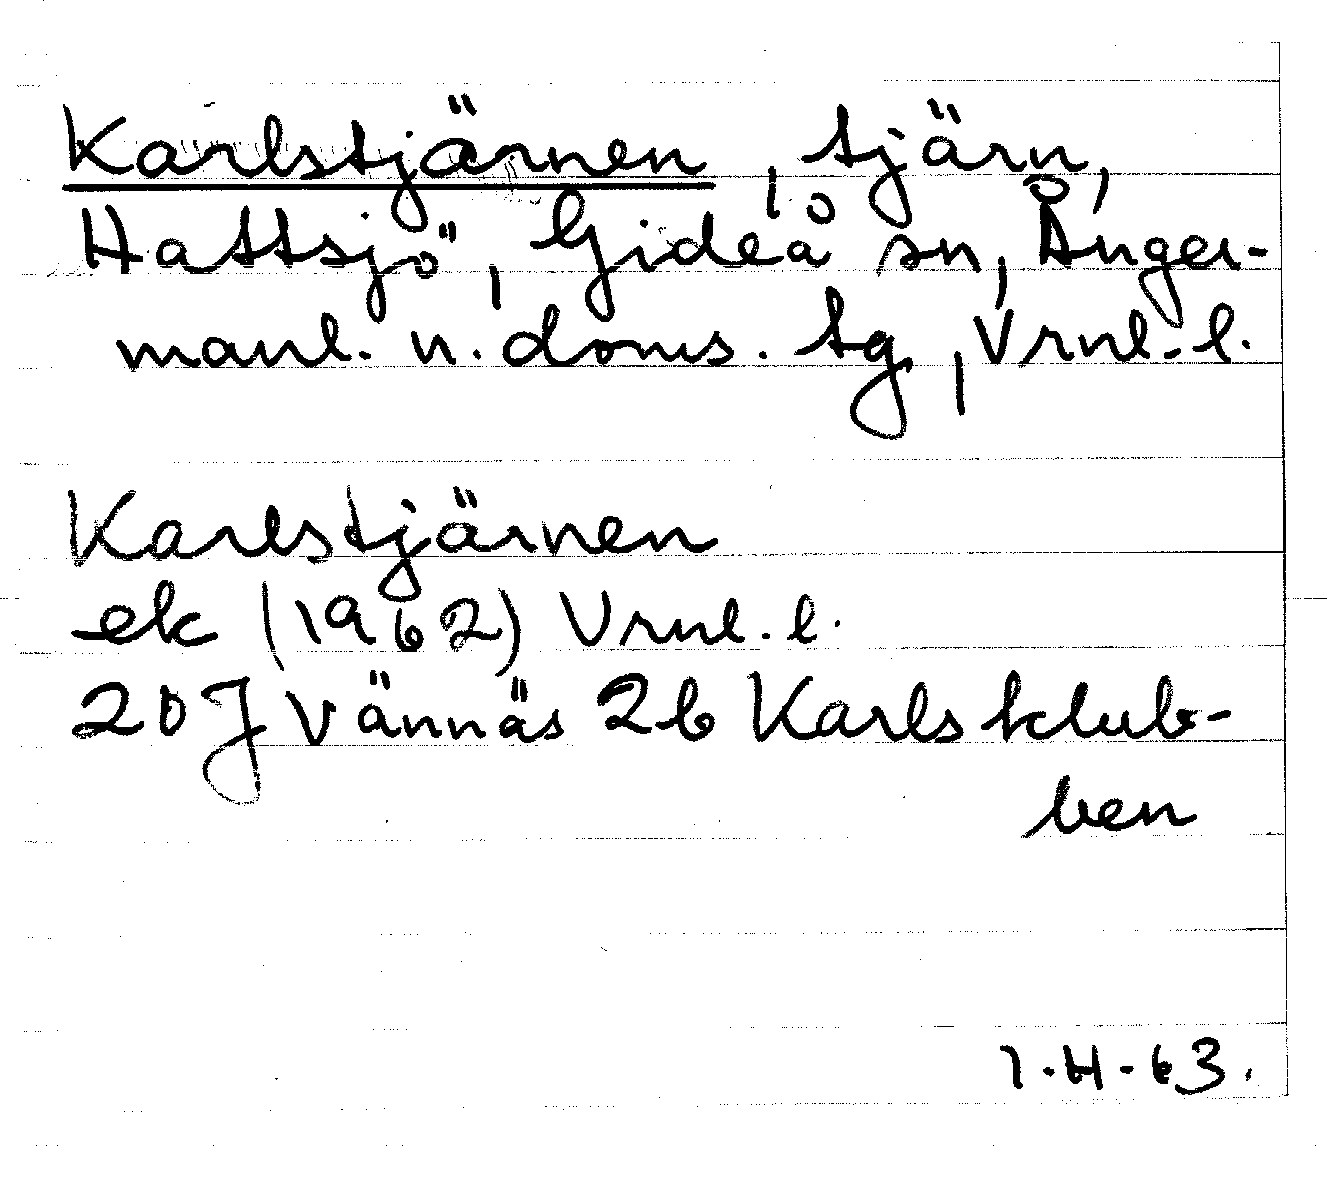 Karlstjärnen, tjärn,
Hattsjö, Gideå sn, Ånger-
manl. n. doms. tg, Vrnl. l.
Karlstjärnen
ek (1962) Vrnl. l.
20J Vännäs 2b Karlsklub-
ben
I.H-63.